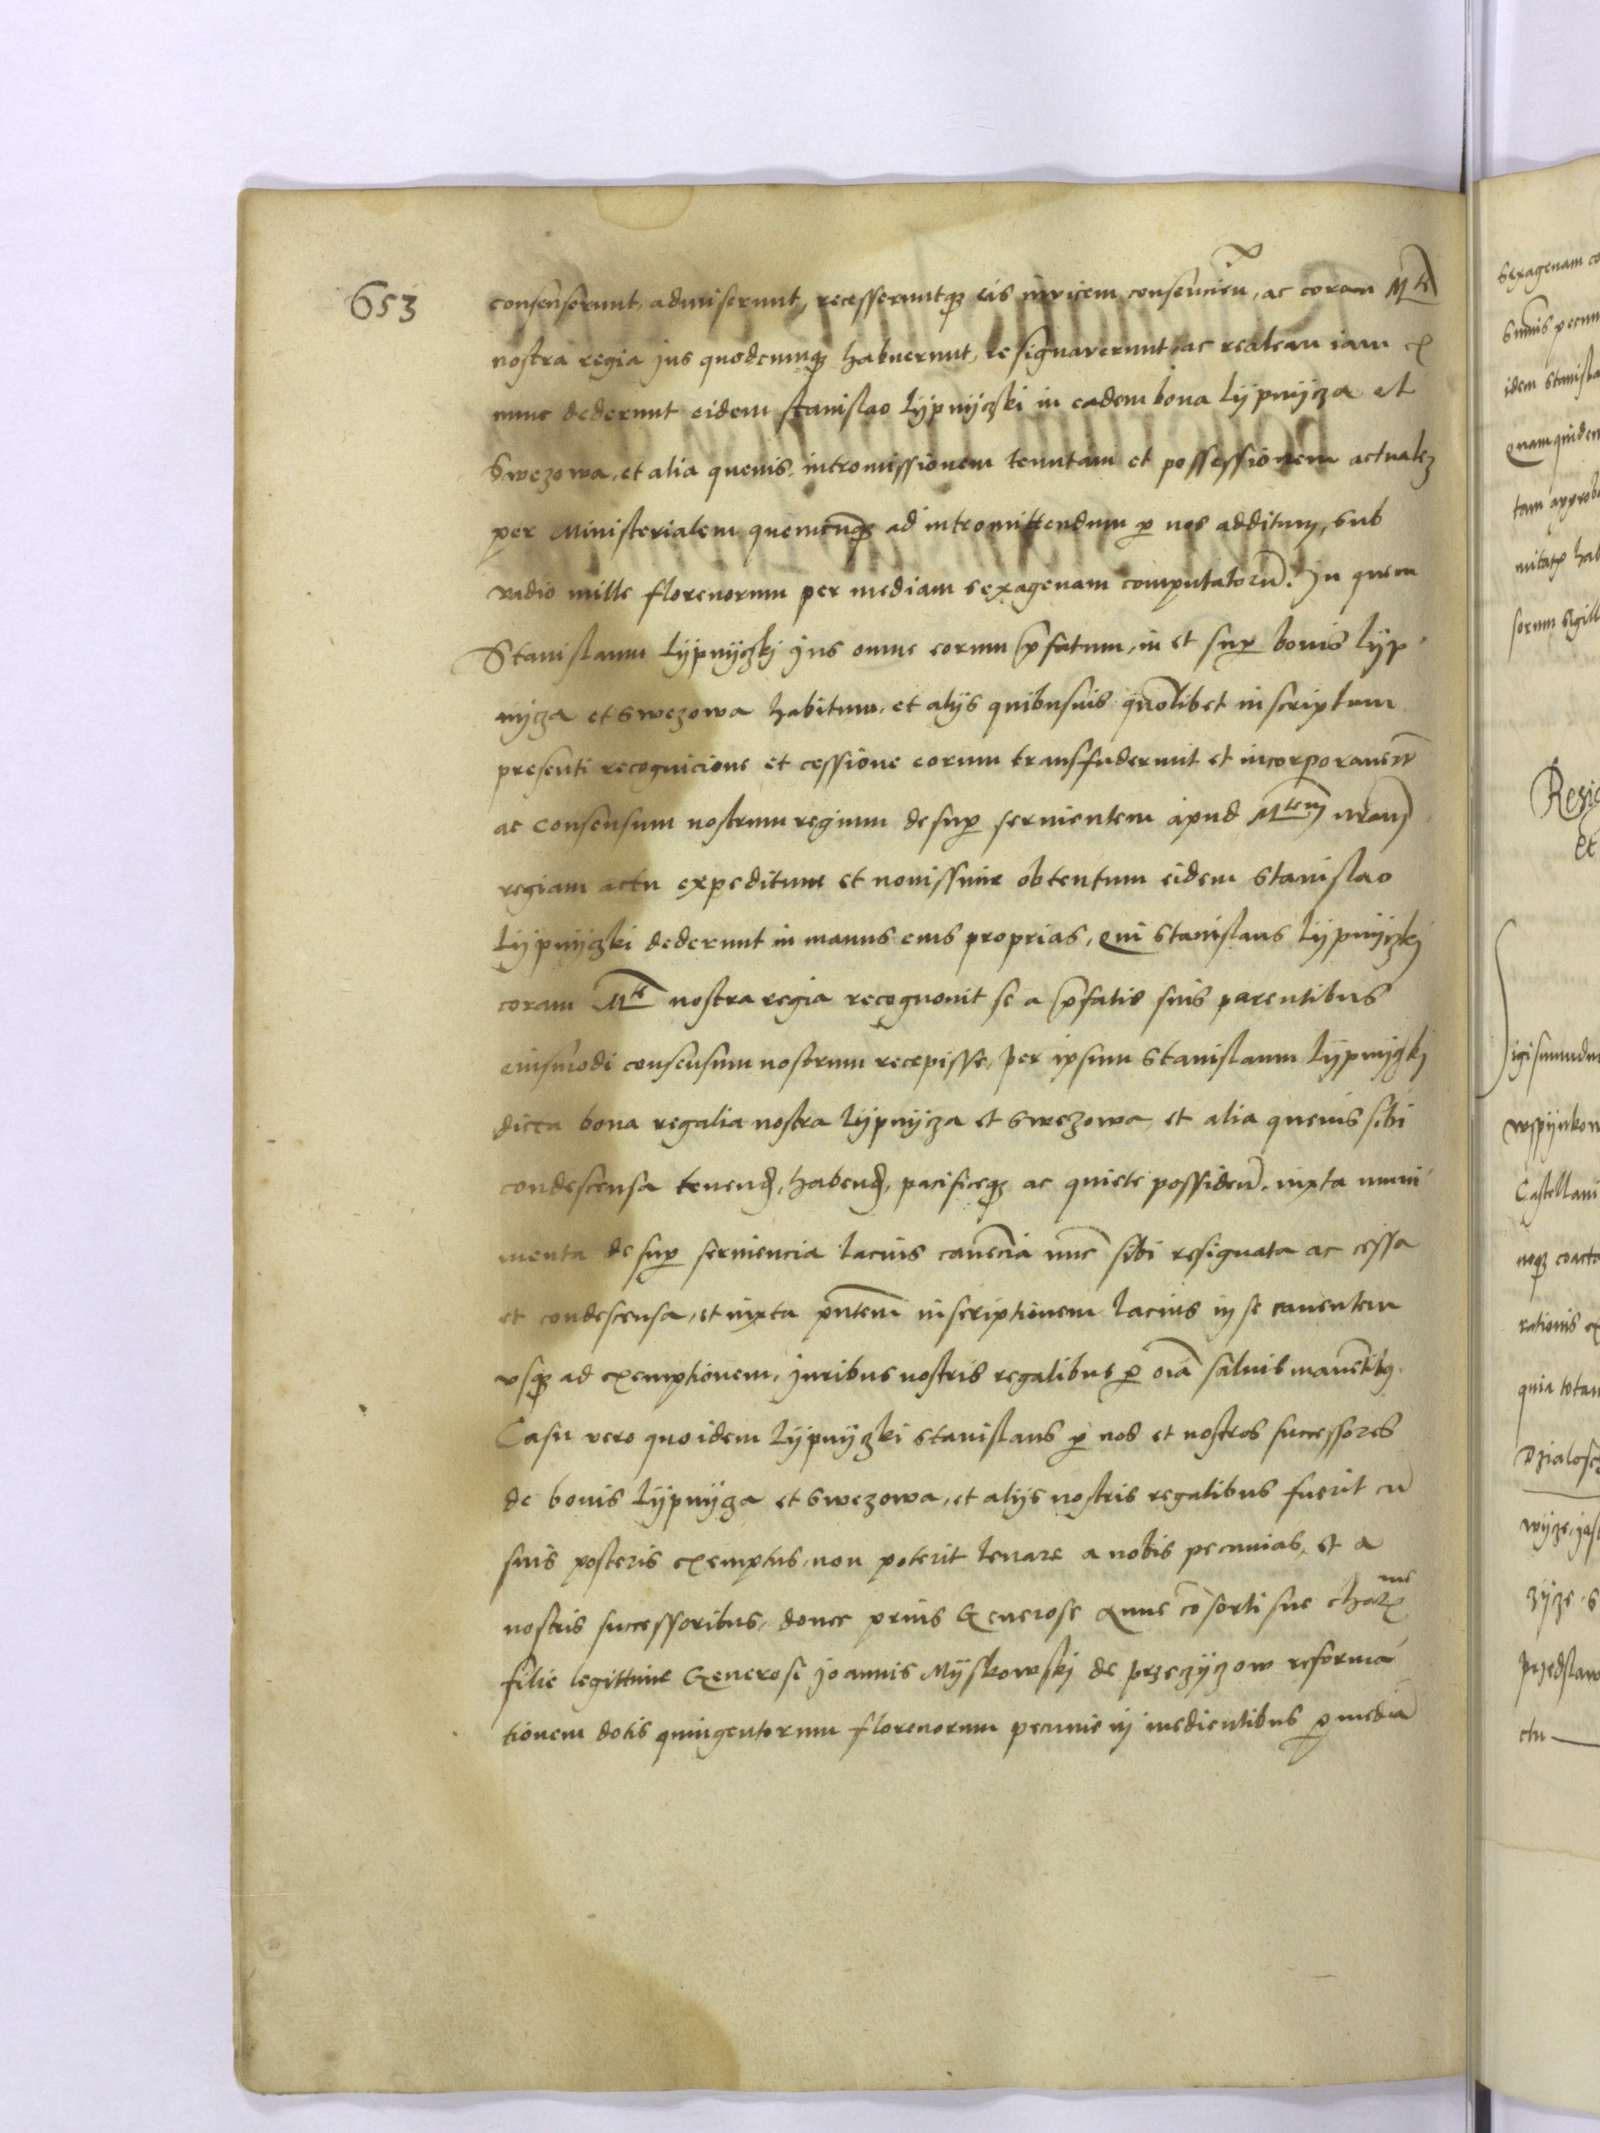 653
consenserunt, admiserunt, recesseruntq3 eis invicem consencieñ, ac coram Mte
nostra regia jus quodcunq3 habuerunt, resignaverunt, ac realem iam ex
nunc dederunt eidem Stanislao Lÿpnÿczski in eadem bona Lÿpnÿcza et
Swezowa, et alia quevis, intromissionem tenutam et possessionem actualez
per Ministerialem quemcūq3 ad intromittendum p nos additum, sub
vadio mille florenorum per mediam sexagenam computatorū. In quem
Stanislaum Lÿpnÿczkj Jus omne eorum p̄fatum, in et sup bonis Lÿp
nÿcza et Swezowa habitum, et alÿs quibusuis quōlibet inscriptum
presenti recognicione et cessione eorum transfuderunt et incorporauerūt
ac consensum nostrum regium desup seruientem apud Mtem nram
regiam actu expeditum et nouissime obtentum eidem Stanislao
Lÿpnÿczki dederunt in manus eius proprias, qui Stanislaus Lÿpnÿczkj
coram Mte nostra regia recognouit se a p̄fatis suis parentibus
eiusmodi consensum nostrum recepisse, per ipsum Stanislaum Lÿpnÿczkj
dicta bona regalia nostra Lÿpnÿcza et Swezowa et alia quevis sibi
condescensa tenend, habend, pacificeq3 ac quiete possideñ, iuxta muni
menta desup seruiencia lacius cauēcia nūc sibi resignata ac cessa
et condescensa, et iuxta pn̄tem inscriptionem lacius in se cauentem
vsq3 ad exemptionem, Juribus nostris regalibus p oīa saluis manētibq
Casu vero quo idem Lÿpnÿczki Stanislaus p nos et nostros successores
de bonis Lÿpnÿcza et Swezowa, et alÿs nostris regalibus fuerit cū
suis posteris exemptus, non poterit leuare a nobis pecunias, et a
nostris successoribus, donec prius Generose Anne cōsorti sue charme
filie legittime Generosi Joannis Mÿskowskj de Przeczÿczow reforma
tionem dotis quingentorum florenorum pecunie in medientibus p mediā
Sexagenam
idem
quam quidem
Regie
Et
igismundu
Castellani
noq3 coacta
rationis
quia totam
ctu